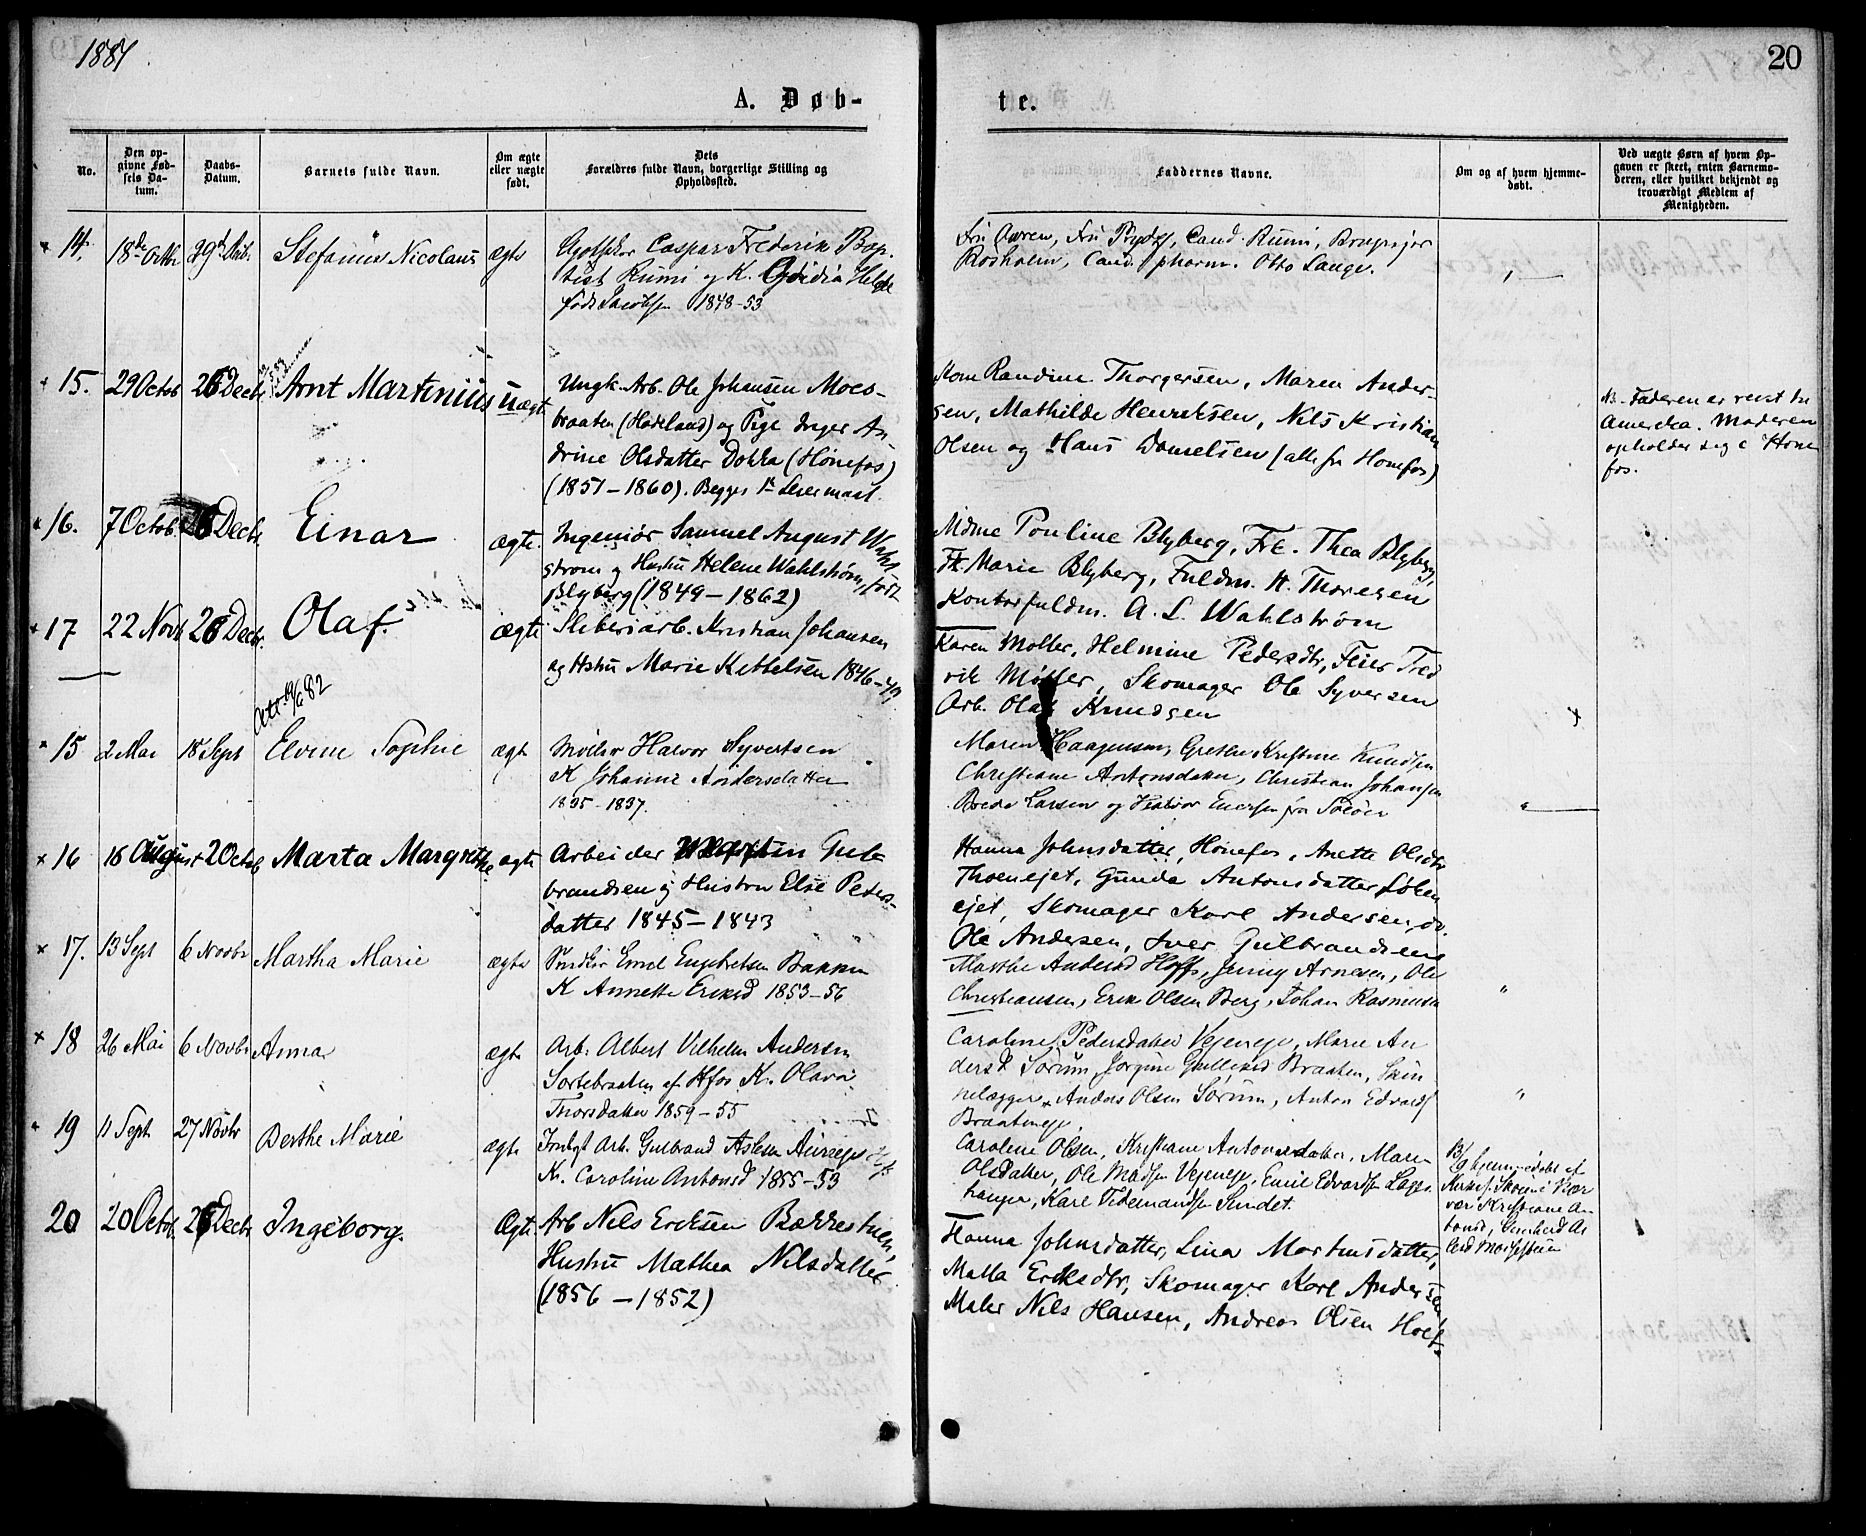 1881.
20
A. Døb-
te.
No.
Den op-
givne Fød-
sels Da-
tum.
Daabs-
Datum.
Barnets fulde Navn.
Om ægte
eller uægte
født.
Dets
Forældres fulde Navn, borgerlige Stilling og
Opholdssted.
Faddernes Navne.
Om og af hvem hjemme-
døbt.
Ved uægte Børn af hvem Op-
gaven er skeet, enten Barnemo-
deren, eller hvilket bekjendt og
troværdigt Medlem af
Menigheden.
14. 18de Octbr 29de Stefanus Nicolaus ægte
Caspar Frederik Bap-
tist Rumi og K. Hilde
født Jacobsen 1848-53
Fru Fru Cand. Rumi,
Rosholm, Cand. pharm. Otto Lange.
15. 29 Octob 26 Decbr. Arnt Martinius uægte
Ungk. Arb. Ole Johansen Moes-
braaten (Hadeland) og Pige Inger An-
drine Olsdatter Dokka (Hønefos)
(1851-1860). Begges 1ste Leiermaal.
Kone Randine Thorgersen, Maren Ander-
sen, Mathilde Henriksen, Nils Kristian
Olsen og Hans Danielsen (alle fra Hønefos)
NB. Faderen er reist til
Amerika. Moderen
opholder sig i Høne
fos.
16. 7 Octob. 26 Decbr. Einar ægte.
Ingeniør Samuel August Wahl
strøm og Hustru Helene Wahlstrøm, født
Blyberg (1849-1862)
Mdme Pouline Blyberg, Frk. Thea Blyberg,
Fr. Marie Blyberg, Fuldm. H. Thoresen
Kontorfuldm. A. L. Wahlstrøm
17 22 Novb 26 Decbr. Olaf. ægte
Sliberiarb. Kristian Johansen
og Hstru Marie Kettelsen 1846-49
Karen Møller, Helmine Pedersdtr, Feier Fred
rik Møller, Skomager Ole Syversen
Arb. Olaf Knudsen
Att. 19/6 82
15 2 Mai 18 Sept Elvine Sophie ægte
Møller Halvor Syvertsen
K Johanne Andersdatter
1835-1837.
Maren Haagensen, Grethe Kristine Knudsen
Christiane Antonsdatter, Christian Johansen
Larsen og Halvor Enersen fra
16 16 August 2 Octob Marta Margrethe ægte
Arbeider Martin Gul-
brandsen og Hustru Else Peders-
datter 1845-1843
Hanna Johnsdatter, Hønefos, Anette Olsdtr
Thoenejet, Gunda Antonsdatter Løken
ejet, Skomager Karl Andersen, do.
Ole Andersen, Iver Gulbrandsen
17. 13 Sept 6 Novbr Martha Marie ægte
Snedker Emil Engebretsen Bakken
K Annette Eriksd 1853-56
Marthe Andersd Hoff, Jenny Arnesen, Ole
Christiansen, Erik Olsen Berg, Johan Rasmussen
18 26 Mai 6 Novbr Anna ægte
Arb. Albert Vilhelm Andersen
Sortebraaten af Hfos K. Olava
Thorsdatter 1859-55
Caroline Pedersdatter Vejeneje, Marie An
dersd Sørum, Jørgine Gulliksd Braaten, Skin
nelægger Anders Olsen Sørum, Anton Edvards
Braateneje.
19 11 Sept 27 Novbr Berthe Marie ægte
Arb. Gulbrand Aslesen
K. Caroline Antonsd 1855-53
Caroline Olsen, Kristiane Antonsdatter, Maren
Olsdatter, Ole Madsen Vejeneje, Emil Edvardsen
Karl Tidemandsen Sundet.
13/9 hjemmedøbt af
Kirkes.
Kristiane An
tonsd,
20 20 Octob. 26 Decbr Ingeborg. Ægte.
Arb Nils Eriksen Bækkestuen,
Hustru Mathea Nilsdatter
(1856-1852)
Hanna Johnsdatter, Lina Martinsdatter,
Malla Eriksdtr, Skomager Karl Andersen
Maler Nils Hansen, Andreas Olsen Hoel.